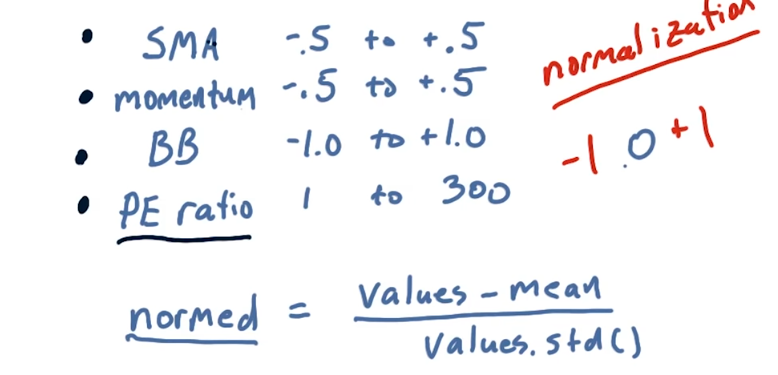 • SMA -.5 to +.5
• momentum -.5 to +.5
• BB -1.0 to +1.0
• PE ratio 1 to 300
normalization
-1 0 +1
normed = values - mean
values.std()